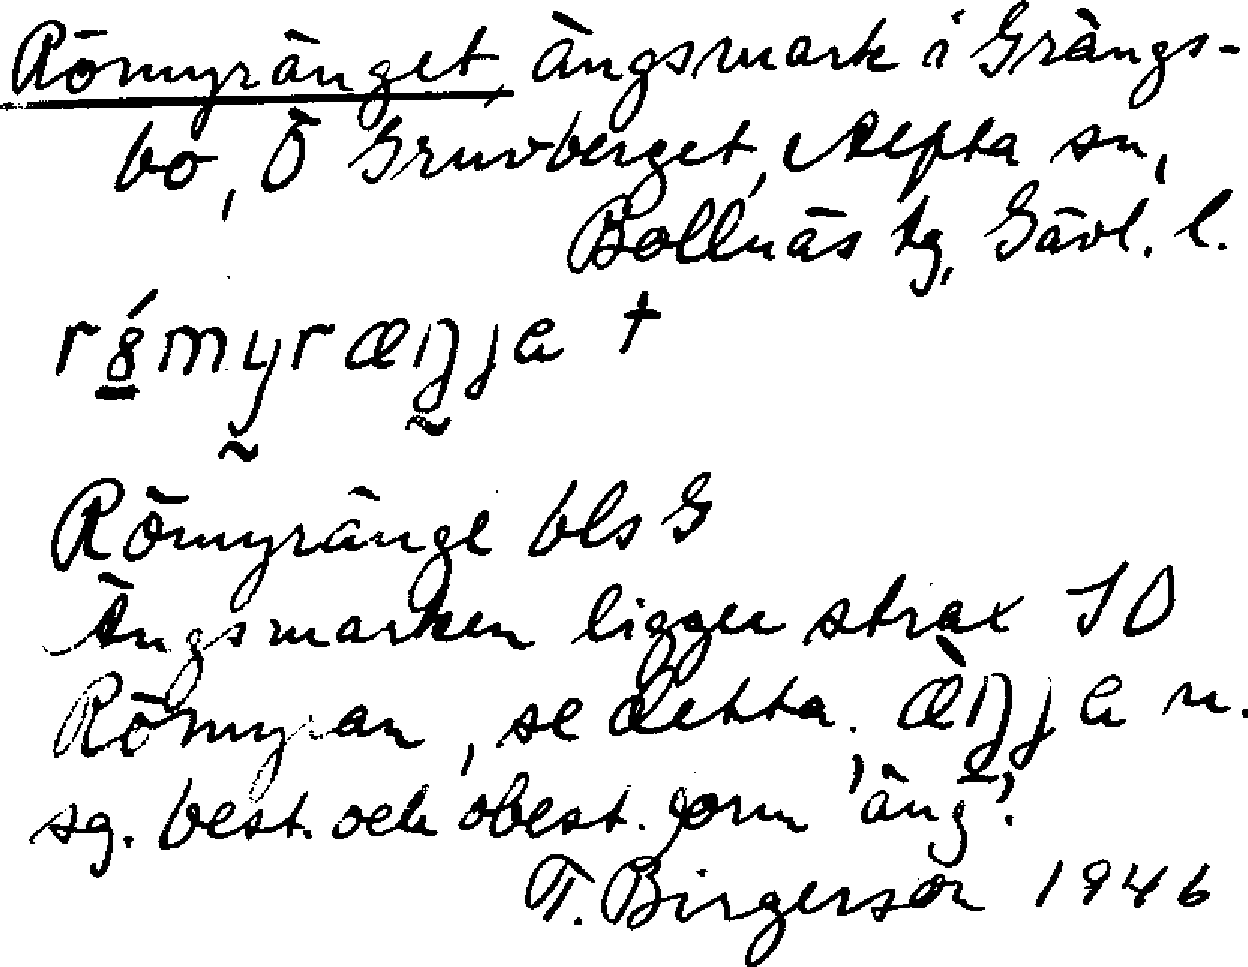 Römyränget, ängsmark i Grängs-
bo, Ö Gruvberget, Alfta sn,
Bollnäs tg, Gävl. l.
rǿmyræŋja +
Römyränge bls G
Ängsmarken ligger strax SO
Römyran, se detta. æ̀ŋja n.
sg. best. och obest. form 'äng'.
T. Birgerson 1946